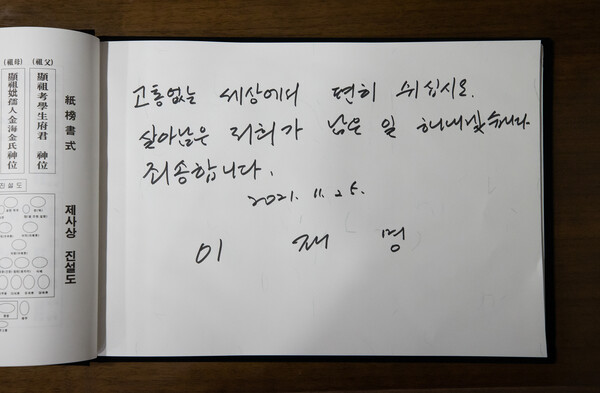 (祖母) (祖父)
顯祖妣孺人金海金氏 神位
顯祖考學生府君 神位
紙榜書式
제사상 진설도
진설도
고통없는 세상에서 편히 쉬십시오.
살아남은 저희가 남은 일 해내겠습니다
죄송합니다.
2021. 11. 25.
이 재 명